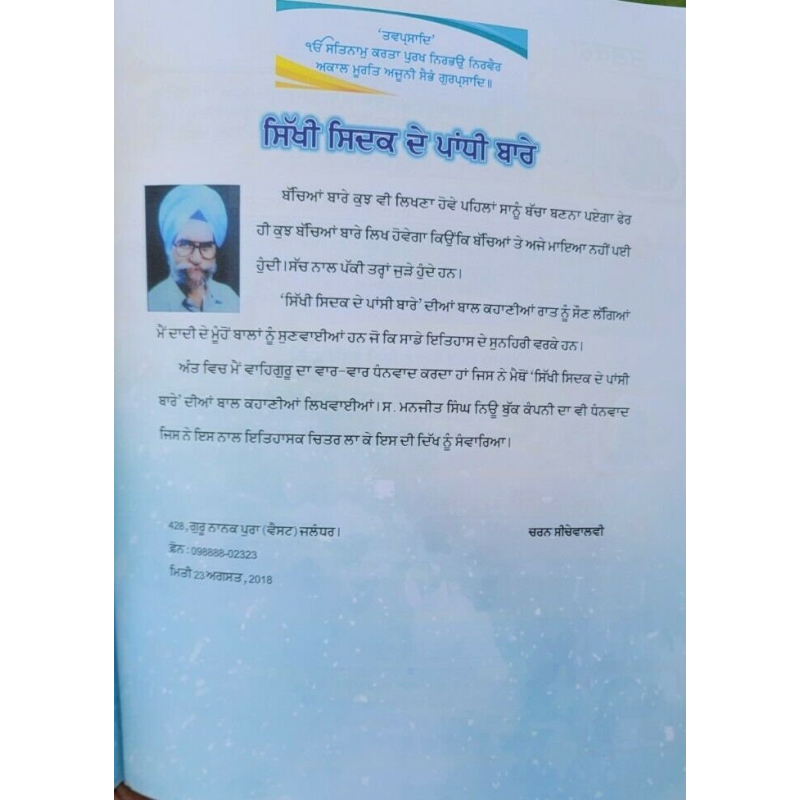 'ਤਵਪ੍ਰਸਾਦਿ'
ੴ ਸਤਿਨਾਮੁ ਕਰਤਾ ਪੁਰਖ ਨਿਰਭਉ ਨਿਰਵੈਰ
ਅਕਾਲ ਮੂਰਤਿ ਅਜੂਨੀ ਸੈਭੰ ਗੁਰਪ੍ਰਸਾਦਿ॥
ਸਿੱਖੀ ਸਿਦਕ ਦੇ ਪਾਂਧੀ ਬਾਰੇ
ਬੱਚਿਆਂ ਬਾਰੇ ਕੁਝ ਵੀ ਲਿਖਣਾ ਹੋਵੇ ਪਹਿਲਾਂ ਸਾਨੂੰ ਬੱਚਾ ਬਣਨਾ ਪਏਗਾ ਫੇਰ
ਹੀ ਕੁਝ ਬੱਚਿਆਂ ਬਾਰੇ ਲਿਖ ਹੋਵੇਗਾ ਕਿਉਂਕਿ ਬੱਚਿਆਂ ਤੇ ਅਜੇ ਮਾਇਆ ਨਹੀਂ ਪਈ
ਹੁੰਦੀ। ਸੱਚ ਨਾਲ ਪੱਕੀ ਤਰ੍ਹਾਂ ਜੁੜੇ ਹੁੰਦੇ ਹਨ।
'ਸਿੱਖੀ ਸਿਦਕ ਦੇ ਪਾਂਸੀ ਬਾਰੇ' ਦੀਆਂ ਬਾਲ ਕਹਾਣੀਆਂ ਰਾਤ ਨੂੰ ਸੌਣ ਲੱਗਿਆਂ
ਮੈਂ ਦਾਦੀ ਦੇ ਮੂੰਹੋਂ ਬਾਲਾਂ ਨੂੰ ਸੁਣਵਾਈਆਂ ਹਨ ਜੋ ਕਿ ਸਾਡੇ ਇਤਿਹਾਸ ਦੇ ਸੁਨਹਿਰੀ ਵਰਕੇ ਹਨ।
ਅੰਤ ਵਿਚ ਮੈਂ ਵਾਹਿਗੁਰੂ ਦਾ ਵਾਰ-ਵਾਰ ਧੰਨਵਾਦ ਕਰਦਾ ਹਾਂ ਜਿਸ ਨੇ ਮੈਥੋਂ 'ਸਿੱਖੀ ਸਿਦਕ ਦੇ ਪਾਂਸੀ
ਬਾਰੇ' ਦੀਆਂ ਬਾਲ ਕਹਾਣੀਆਂ ਲਿਖਵਾਈਆਂ। ਸ. ਮਨਜੀਤ ਸਿੰਘ ਨਿਊ ਬੁੱਕ ਕੰਪਨੀ ਦਾ ਵੀ ਧੰਨਵਾਦ
ਜਿਸ ਨੇ ਇਸ ਨਾਲ ਇਤਿਹਾਸਕ ਚਿਤਰ ਲਾ ਕੇ ਇਸ ਦੀ ਦਿੱਖ ਨੂੰ ਸੰਵਾਰਿਆ।
428, ਗੁਰੂ ਨਾਨਕ ਪੁਰਾ (ਵੈਸਟ) ਜਲੰਧਰ।
ਚਰਨ ਸੀਚੇਵਾਲਵੀ
ਫ਼ੋਨ : 098888-02323
ਮਿਤੀ 23 ਅਗਸਤ, 2018